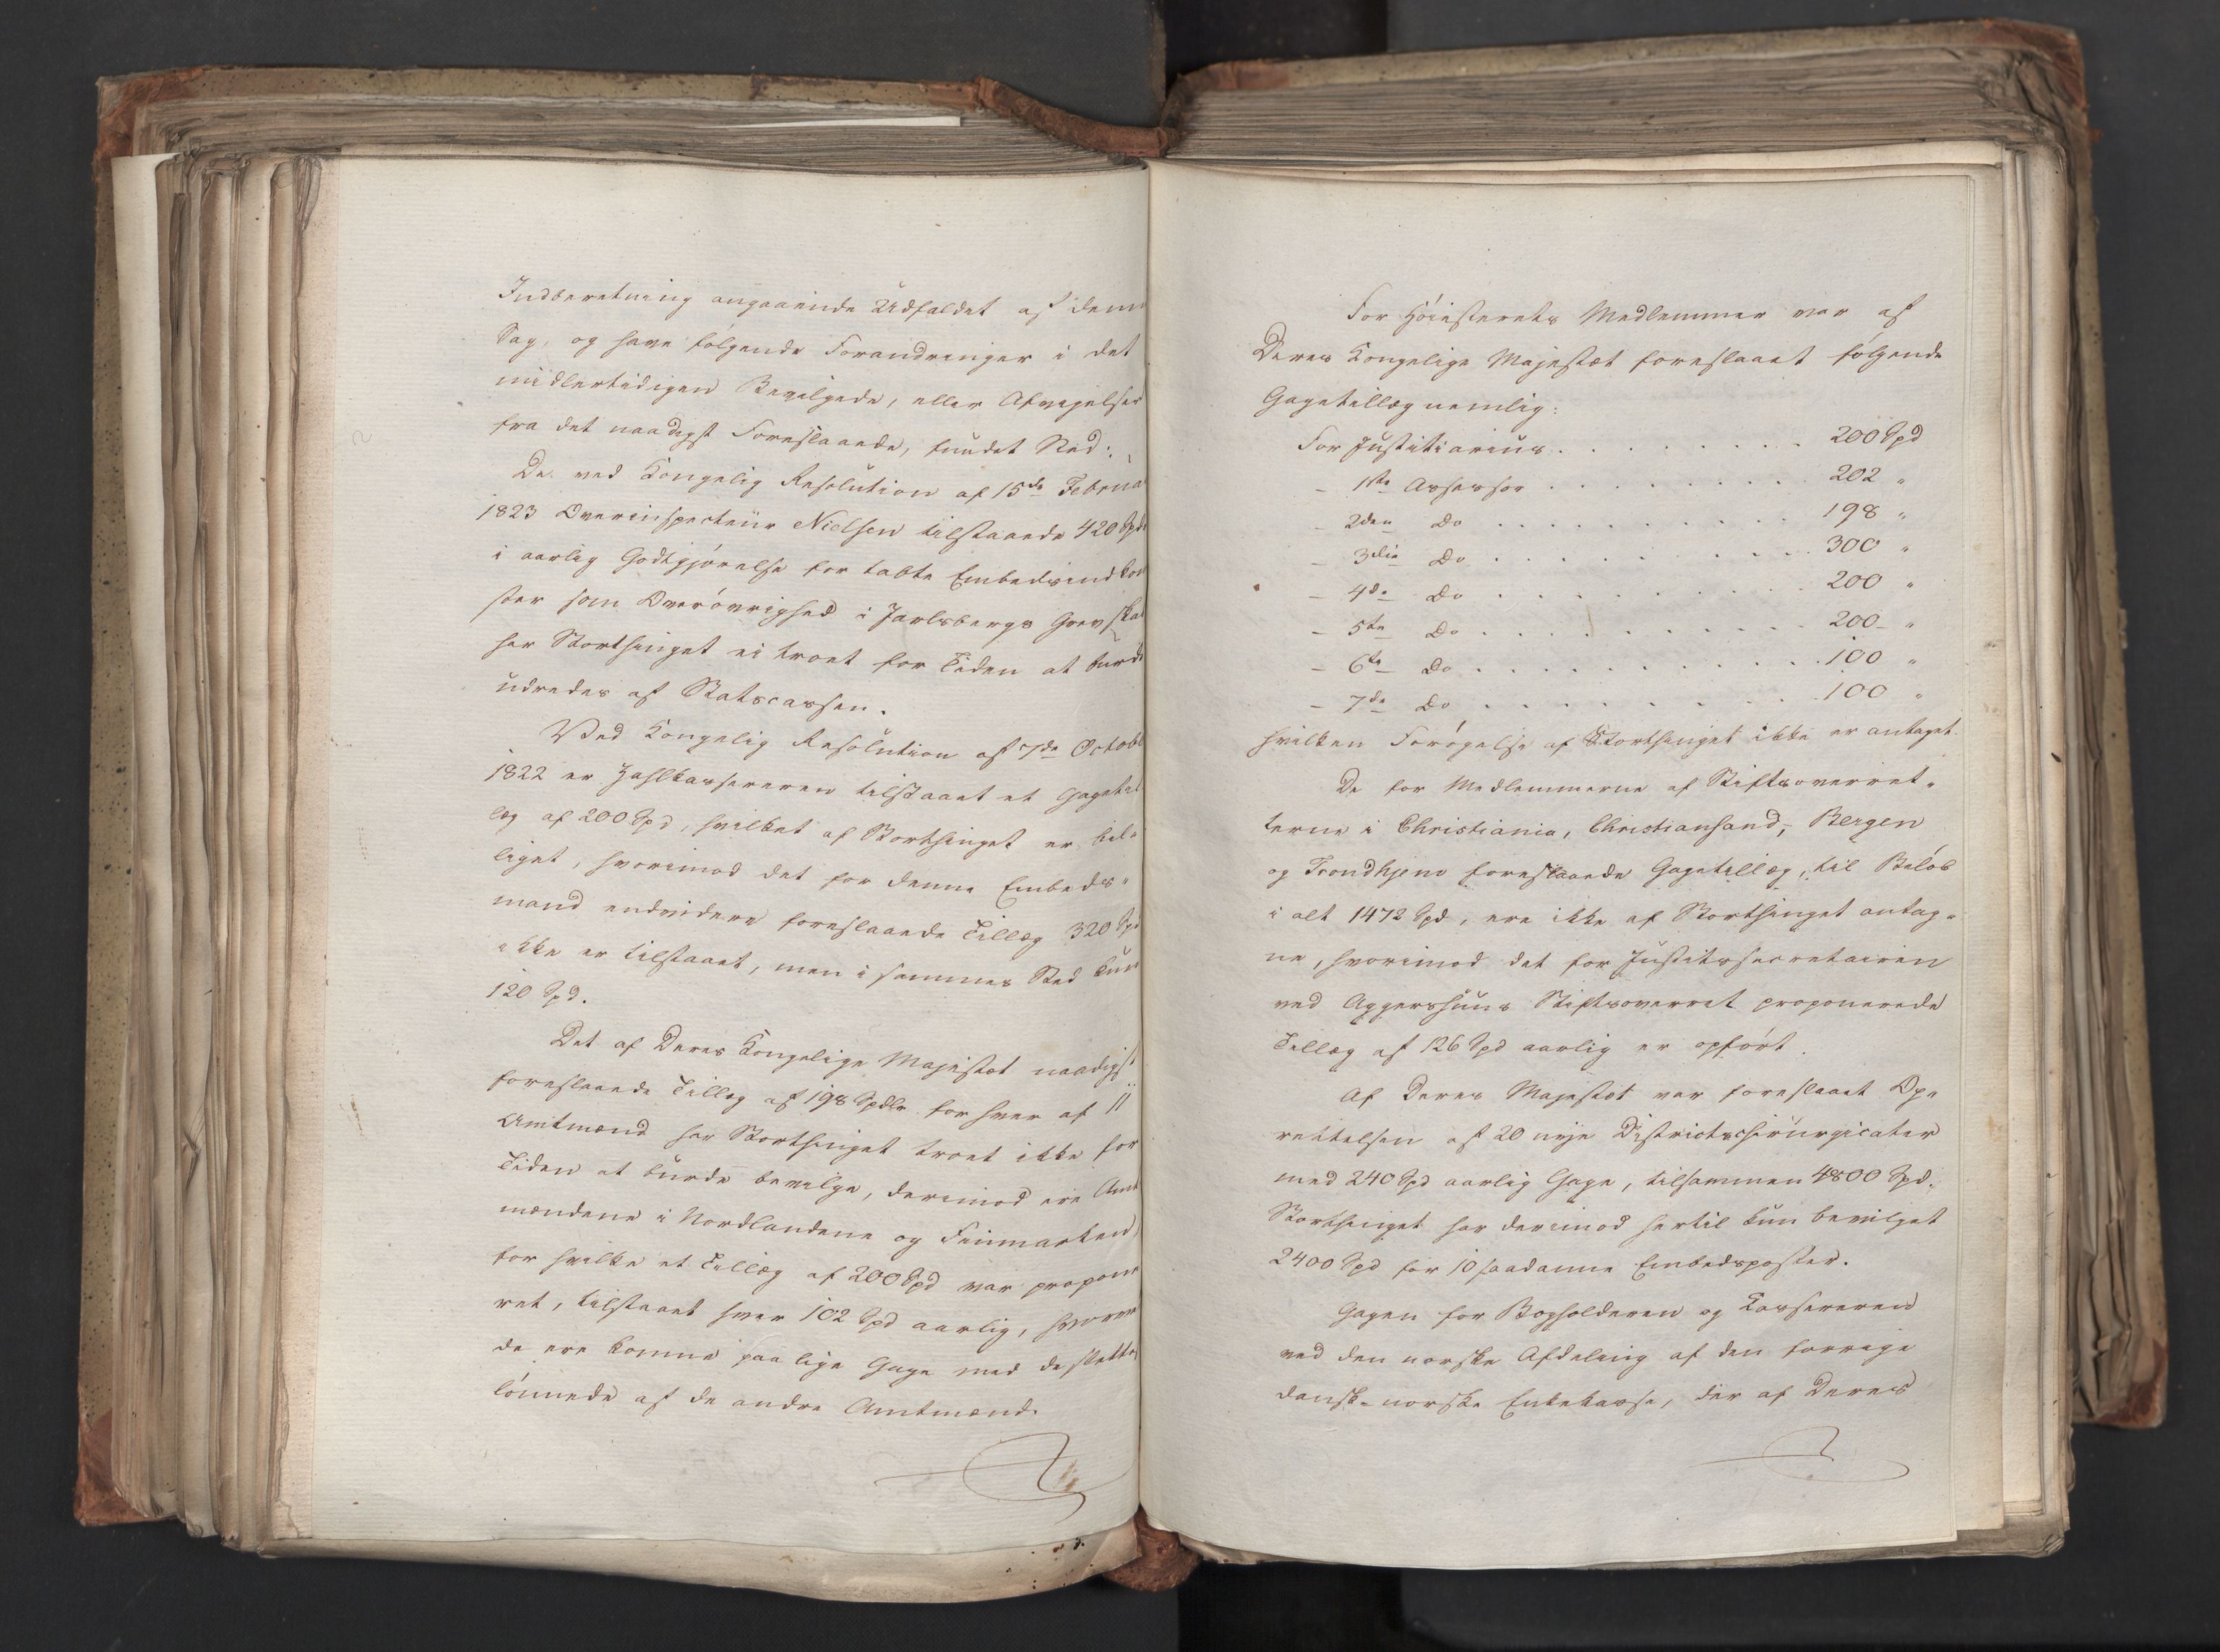 Indberetning angaaende Udfaldet af denne
Sag, og have følgende Forandringer i det
midlertidigen Bevilgede, eller Afvigelser
fra det naadigst Foreslaaede, fundet Sted:
De ved Kongelig Resolution af 15de Februa
1823 Overinspecteur Nielsen tilstaaede 420 Spd
i aarlig Godtgjørelse for tabte Embedsindkom
ster som Overøvrighed i Jarlsbergs Grevskab
har Storthinget ei troet for Tiden at burde
udredes af Statscassen.
Ved Kongelig Resolution af 7de Octobr
1822 er Zahlkassereren tilstaaet et Gagetil
læg af 200 Spd, hvilket af Storthinget er bil-
liget, hvorimod det for denne Embeds-
mand endvidere foreslaaede Tillæg 320 Spd
ikke er tilstaaet, men i sammes Sted kun
120 Spd.
Det af Deres Kongelige Majestæt naadigst
foreslaaede Tillæg af 198 Spdlr for hver af 11
Amtmænd har Storthinget troet ikke for
Tiden at burde bevilge, derimod ere Amt
mændene i Nordlandene og Finmarken
for hvilke et Tillæg af 200 Spd var propone
ret, tilstaaet hver 102 Spd aarlig, hvorved
de ere komne paa lige Gage med de slettest
lønnede af de andre Amtmænd.
For Høiesterets Medlemmer var af
Deres Kongelige Majestæt foreslaaet følgende
Gagetillæg nemlig:
For Justitiarius . . . . . . . 200 Spd
- 1ste Assessor . . . . . . . . 202 "
- 2den Do . . . . . . . . . . 198 "
- 3die Do . . . . . . . . . . 300 "
- 4de Do . . . . . . . . . . 200 "
- 5te Do . . . . . . . . . . 200 - "
- 6te Do . . . . . . . . . . 100 "
- 7de Do . . . . . . . . . . 100 "
hvilken Forøgelse af Storthinget ikke er antaget.
De for Medlemmerne af Stiftsoverret-
terne i Christiania, Christiansand, Bergen
og Trondhjem foreslaaede Gagetillæg, til Beløb
i alt 1472 Spd, ere ikke af Storthinget antag-
ne, hvorimod det for Justitssecretairen
ved Aggershuus Stiftsoverret proponerede
Tillæg af 126 Spd aarlig er opført.
Af Deres Majestæt var foreslaaet Op-
rettelsen af 20 nye Districtschirurgicater
med 240 Spd aarlig Gage, tilsammen 4800 Spd.
Storthinget har derimod hertil kun bevilget
2400 Spd for 10 saadanne Embedsposter.
Gagen for Bogholderen og Kassereren
ved den norske Afdeling af den forrige
dansk-norske Enkekasse, der af Deres